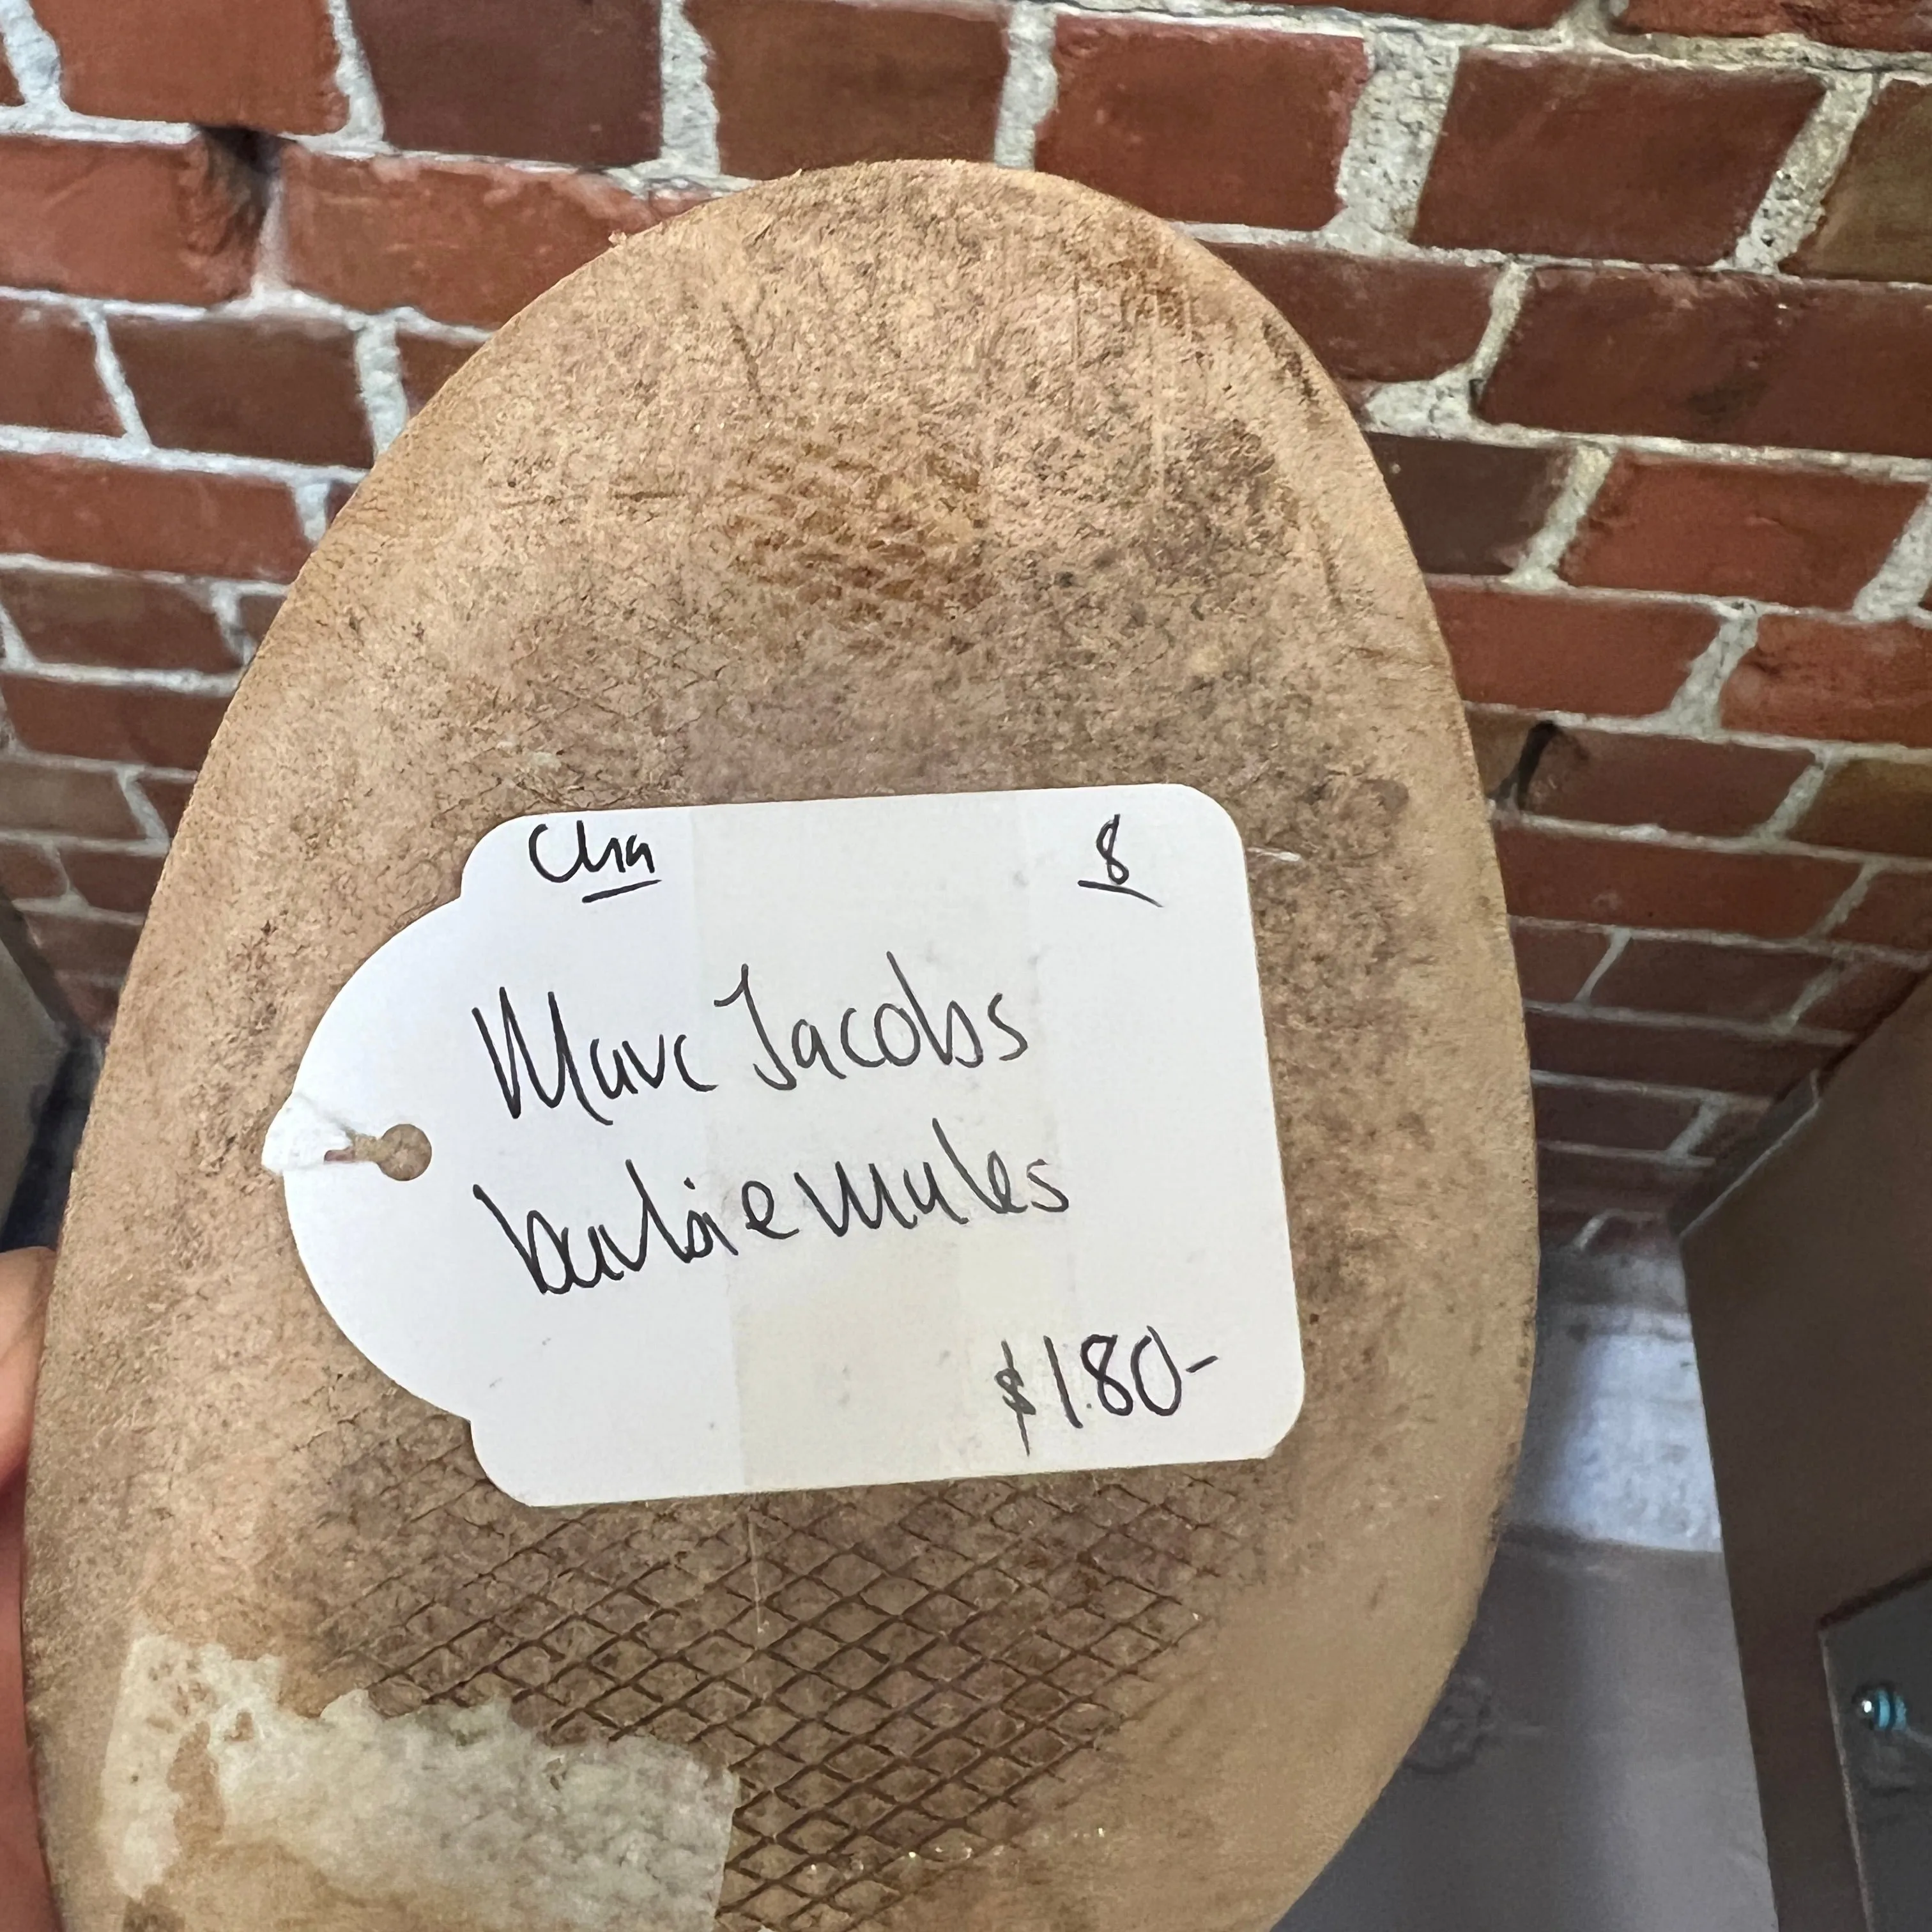 Cha 8
Marc Jacobs
barbie mules
$180-